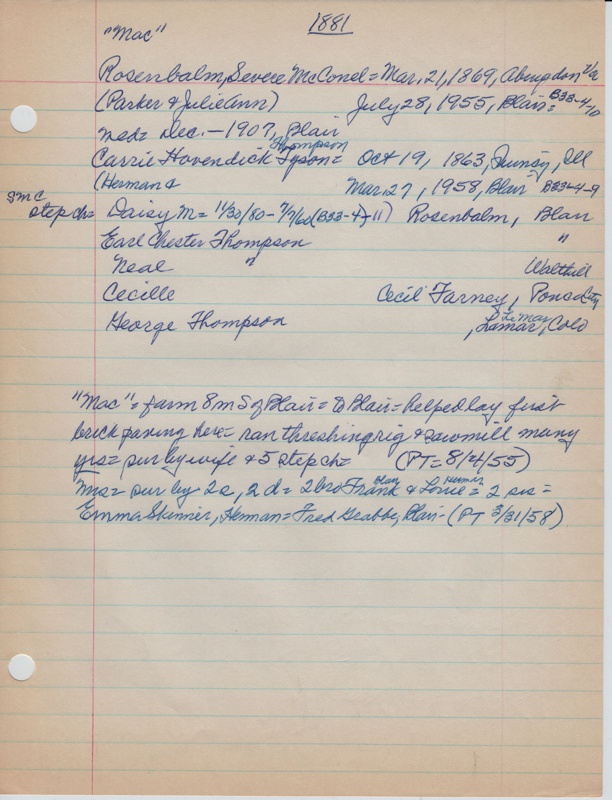 1881
"Mac"
Rosenbalm, Severe McConel = Mar. 21, 1869, Abingdon Va
(Parker & Julie Ann) July 28, 1955, Blair = B33-4-10
ned = Dec. - 1907, Blair
Thompson
Carrie Hovendick Tyson = Oct 19, 1863, Quincy, Ill
(Herman & Mar 27, 1958, Blair B33-4-9
SMC
step ch = Daisy M = 11/30/80 - 7/7/60 (B33-4-11) Rosenbalm, Blair
Earl Chester Thompson "
Neal " Walthill
Cecille Cecil Farney, Ponca City
George Thompson , Lamar, Colo
"Mac" = farm 8 m S of Blair = to Blair = helped lay first
brick paving here = ran threshing rig & sawmill many
yrs = sur by wife & 5 step ch = (PT = 8/4/55)
Mrs = sur by 2 s, 2 d = 2 bro Frank Blair & = 2 sis =
Emma Skinner, Herman = Fred Grabbe, Blair - (PT 3/31/58)